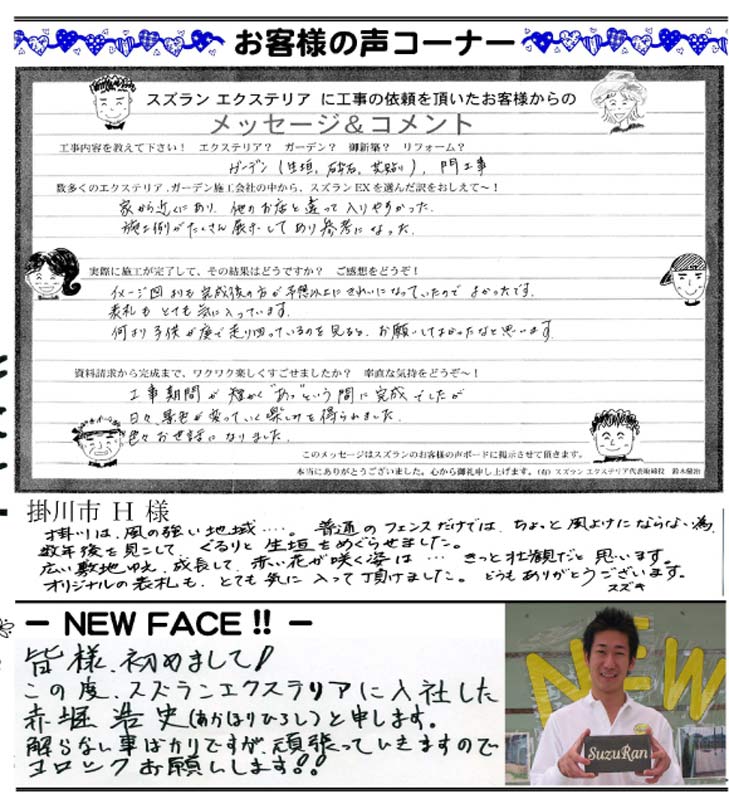 お客様の声コーナー
スズラン エクステリア に工事の依頼を頂いたお客様からの
メッセージ&コメント
工事内容を教えて下さい! エクステリア? ガーデン? 御新築? リフォーム?
ガーデン(生垣、砕石、芝貼り)、門工事
数多くのエクステリア、ガーデン施工会社の中から、スズランEXを選んだ訳をおしえて〜!
家から近くにあり、他のお店と違って入りやすかった。
施工例がたくさん展示してあり参考になった。
実際に施工が完了して、その結果はどうですか? ご感想をどうぞ!
イメージ図よりも完成後の方が予想以上にきれいになっていたのでよかったです。
表札もとても気に入っています。
何より子供が庭で走り回っているのを見ると、お願いしてよかったなと思います。
資料請求から完成まで、ワクワク楽しくすごせましたか? 率直な気持をどうぞ〜!
工事期間が短かく"あっ"という間に完成でしたが
日々、景色が変っていく楽しみを得られました。
色々お世話になりました。
このメッセージはスズランのお客様の声ボードに掲示させて頂きます。
本当にありがとうございました。心から御礼申し上げます。(有)スズラン エクステリア代表取締役 鈴木
掛川市 H 様
掛川は、風の強い地域‥‥。普通のフェンスだけでは、ちょっと風よけにならない為、
数年後を見こして、ぐるりと生垣をめぐらせました。
広い敷地ゆえ、成長して、赤い花が咲く姿は … きっと壮観だと思います。
オリジナルの表札も、とても気に入って頂けました。どうもありがとうございます。
スズキ
— NEW FACE !! —
皆様、初めまして!
この度、スズランエクステリアに入社した
赤堀浩史(あかほりひろし)と申します。
解らない事ばかりですが、頑張っていきますので
ヨロシクお願いします!!
NEW
SuzuRan